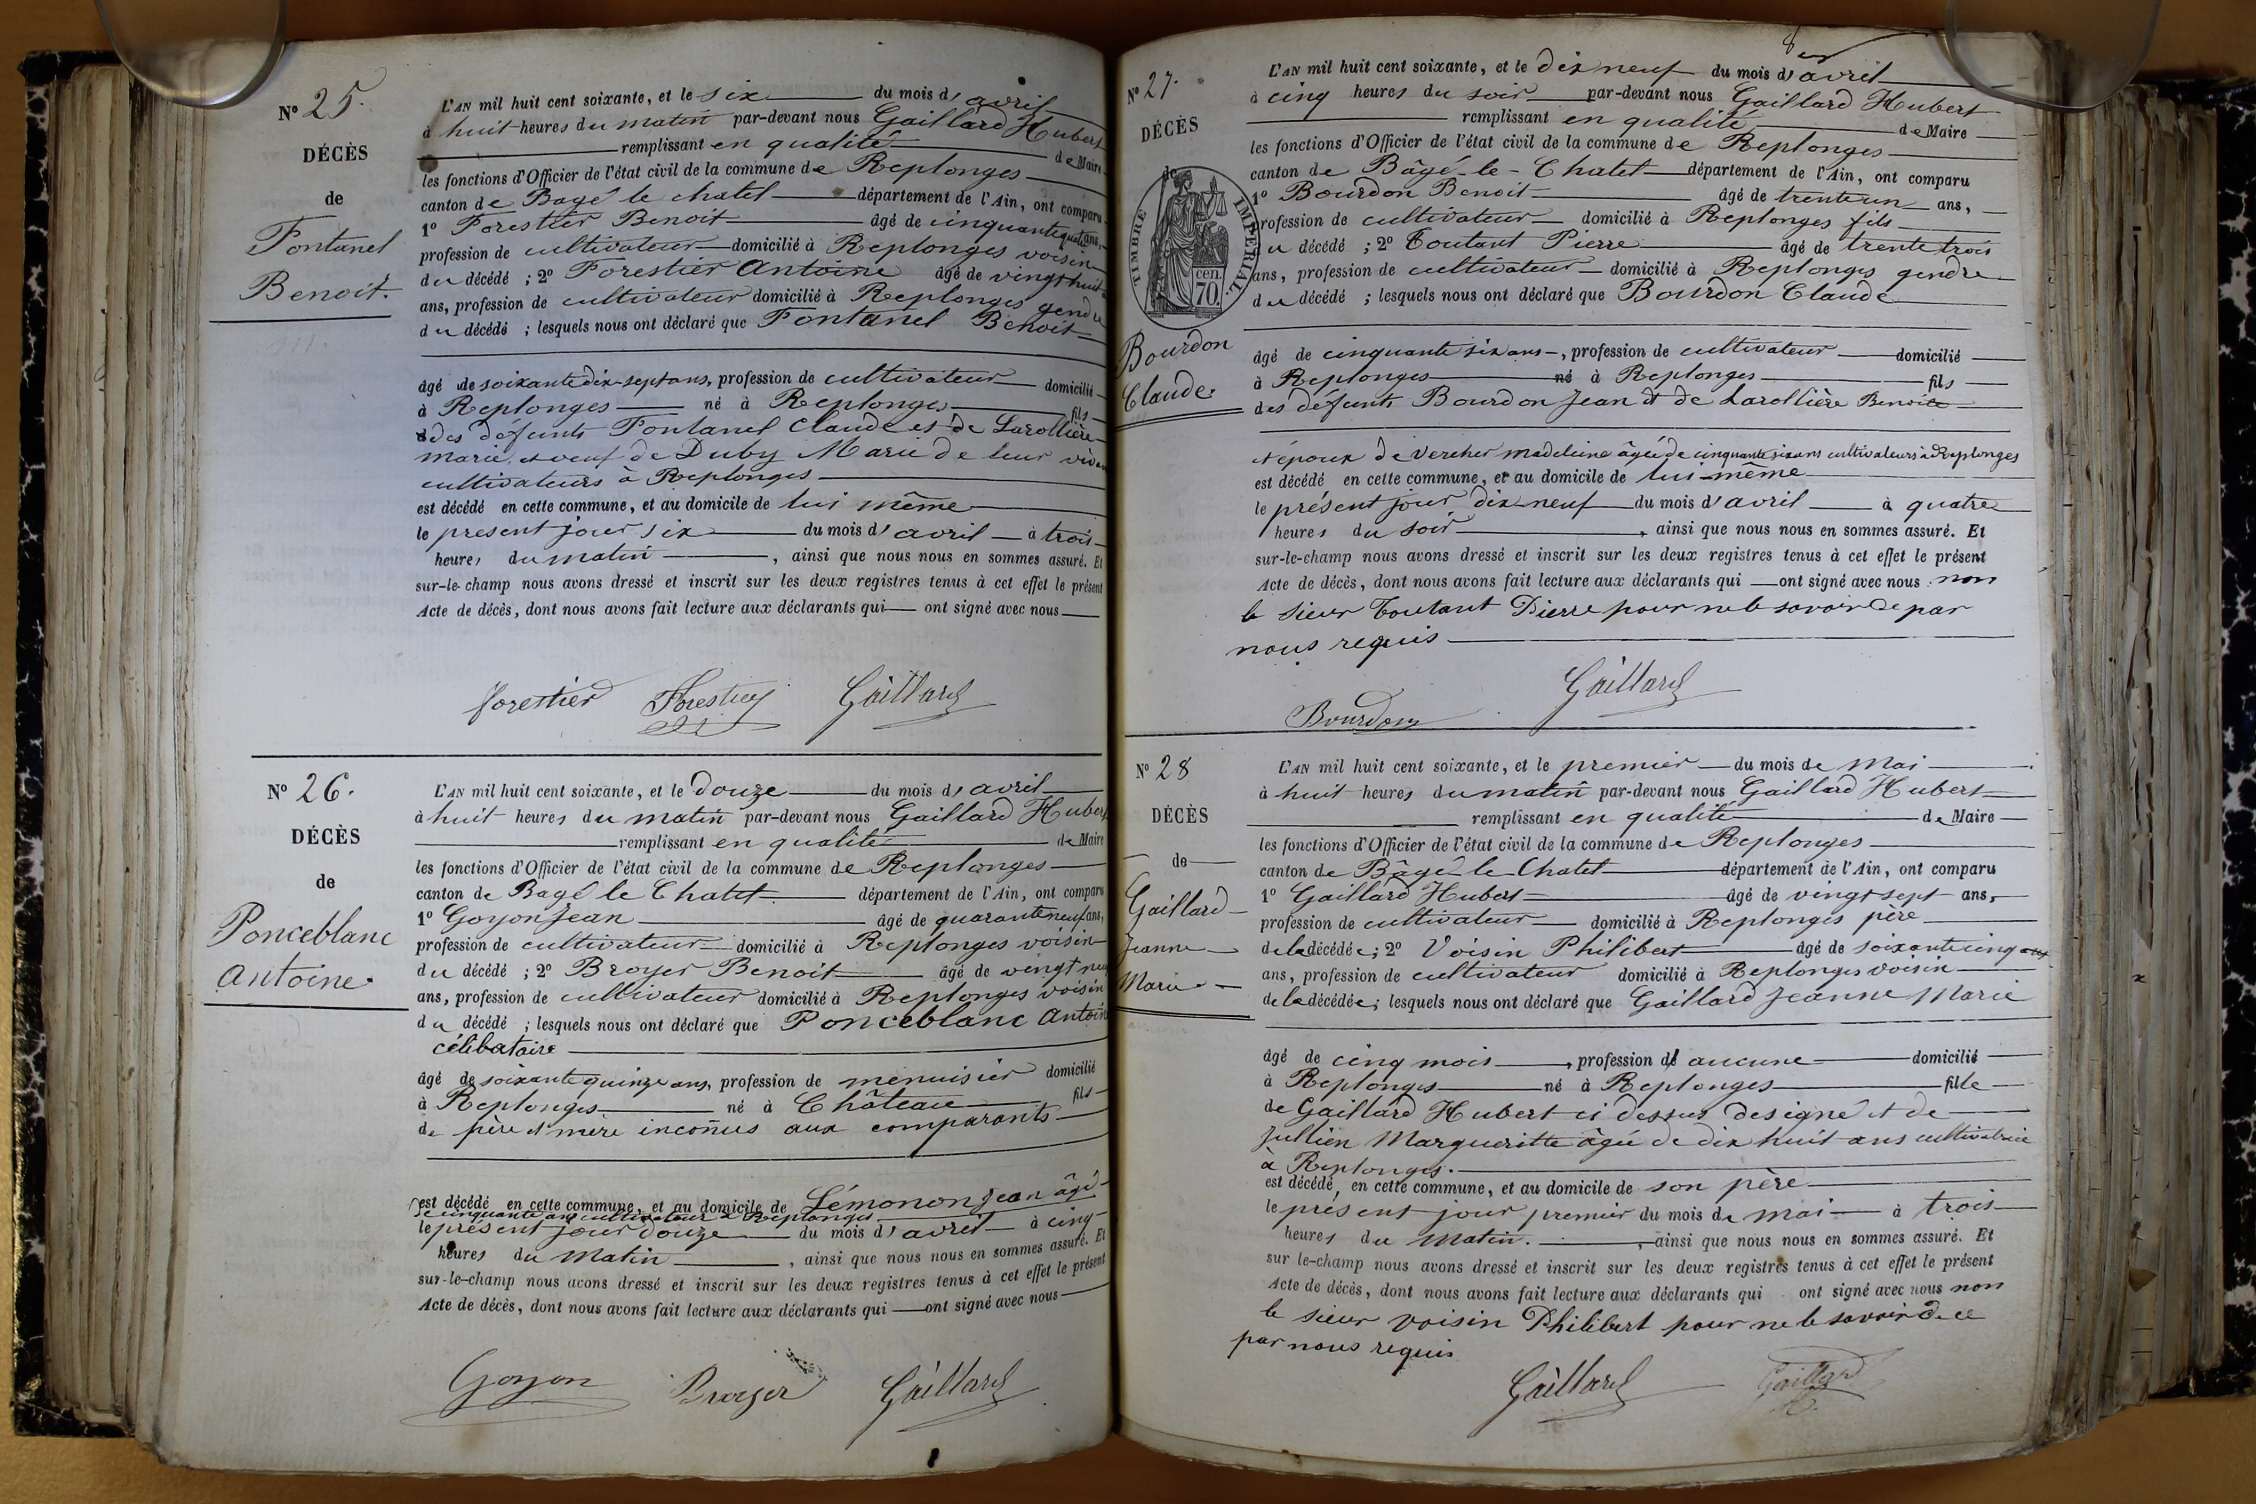 N° 25.
DÉCÈS
de
Fontanel
Benoit.
L'AN mil huit cent soixante, et le six du mois d'avril
à huit heures du matin par-devant nous Gaillard Hubert
remplissant en qualité de Maire
les fonctions d'Officier de l'état civil de la commune de Replonges
canton de Bagé le chatel département de l'Ain, ont comparu
1° Forestier Benoit âgé de cinquante quatre ans,
profession de cultivateur domicilié à Replonges voisin
du décédé ; 2° Forestier Antoine âgé de vingt huit
ans, profession de cultivateur domicilié à Replonges gendre
du décédé ; lesquels nous ont déclaré que Fontanel Benoit
âgé de soixante dix-sept ans, profession de cultivateur domicilié
à Replonges né à Replonges fils
des défunts Fontanel Claude et de Larollière
marie, et veuf de Duby Marie de leur vivant
cultivateurs à Replonges
est décédé en cette commune, et au domicile de lui même
le present jour six du mois d'avril à trois
heures du matin, ainsi que nous nous en sommes assuré. Et
sur-le-champ nous avons dressé et inscrit sur les deux registres tenus à cet effet le présent
Acte de décès, dont nous avons fait lecture aux déclarants qui ont signé avec nous
forestier Forestier Gaillard
N° 26.
DÉCÈS
de
Ponceblanc
Antoine.
L'AN mil huit cent soixante, et le douze du mois d'avril
à huit heures du matin par-devant nous Gaillard Hubert
remplissant en qualité de Maire
les fonctions d'Officier de l'état civil de la commune de Replonges
canton de Bagé le Chatel département de l'Ain, ont comparu
1° Goyon Jean âgé de quarante neuf ans,
profession de cultivateur domicilié à Replonges voisin
du décédé ; 2° Broyer Benoit âgé de vingt neuf
ans, profession de cultivateur domicilié à Replonges voisin
du décédé ; lesquels nous ont déclaré que Ponceblanc Antoine
célibataire
âgé de soixante quinze ans, profession de menuisier domicilié
à Replonges né à Château fils
de père et mère inconnus aux comparants
est décédé en cette commune, et au domicile de Lémonon Jean âgé
de cinquante ans cultivateur à Replonges
le présent jour douze du mois d'avril à cinq
heures du matin, ainsi que nous nous en sommes assuré. Et
sur-le-champ nous avons dressé et inscrit sur les deux registres tenus à cet effet le présent
Acte de décès, dont nous avons fait lecture aux déclarants qui ont signé avec nous
Goyon Broyer Gaillard
8
N° 27.
DÉCÈS
de
TIMBRE IMPÉRIAL.
cen.
70.
Bourdon
Claude.
L'AN mil huit cent soixante, et le dix neuf du mois d'avril
à cinq heures du soir par-devant nous Gaillard Hubert
remplissant en qualité de Maire
les fonctions d'Officier de l'état civil de la commune de Replonges
canton de Bâgé-le-Chatel département de l'Ain, ont comparu
1° Bourdon Benoit âgé de trente un ans,
profession de cultivateur domicilié à Replonges fils
du décédé ; 2° Toutant Pierre âgé de trente trois
ans, profession de cultivateur domicilié à Replonges gendre
du décédé ; lesquels nous ont déclaré que Bourdon Claude
âgé de cinquante six ans, profession de cultivateur domicilié
à Replonges né à Replonges fils
des défunts Bourdon Jean et de Larollière Benoite
et époux de Vercher Madeleine âgée de cinquante six ans cultivateurs à Replonges
est décédé en cette commune, et au domicile de lui-même
le présent jour dix neuf du mois d'avril à quatre
heures du soir, ainsi que nous nous en sommes assuré. Et
sur-le-champ nous avons dressé et inscrit sur les deux registres tenus à cet effet le présent
Acte de décès, dont nous avons fait lecture aux déclarants qui ont signé avec nous non
le sieur Toutant Pierre pour ne le savoir de par
nous requis
Gaillard
Bourdon
N° 28
DÉCÈS
de
Gaillard
Jeanne
Marie
L'AN mil huit cent soixante, et le premier du mois de Mai
à huit heures du matin par-devant nous Gaillard Hubert
remplissant en qualité de Maire
les fonctions d'Officier de l'état civil de la commune de Replonges
canton de Bâgé le Chatel département de l'Ain, ont comparu
1° Gaillard Hubert âgé de vingt sept ans,
profession de cultivateur domicilié à Replonges père
de la décédée ; 2° Voisin Philibert âgé de soixante cinq ans
ans, profession de cultivateur domicilié à Replonges voisin
de la décédée ; lesquels nous ont déclaré que Gaillard Jeanne Marie
âgé de cinq mois, profession de aucune domicilié
à Replonges né à Replonges fille
de Gaillard Hubert ci dessus designé et de
Jullien Margueritte âgée de dix huit ans cultivatrice
à Replonges.
est décédé en cette commune, et au domicile de son père
le présent jour premier du mois de mai à trois
heures du matin., ainsi que nous nous en sommes assuré. Et
sur le-champ nous avons dressé et inscrit sur les deux registres tenus à cet effet le présent
Acte de décès, dont nous avons fait lecture aux déclarants qui ont signé avec nous non
le sieur voisin Philibert pour ne le savoir de ce
par nous requis
Gaillard Gaillard